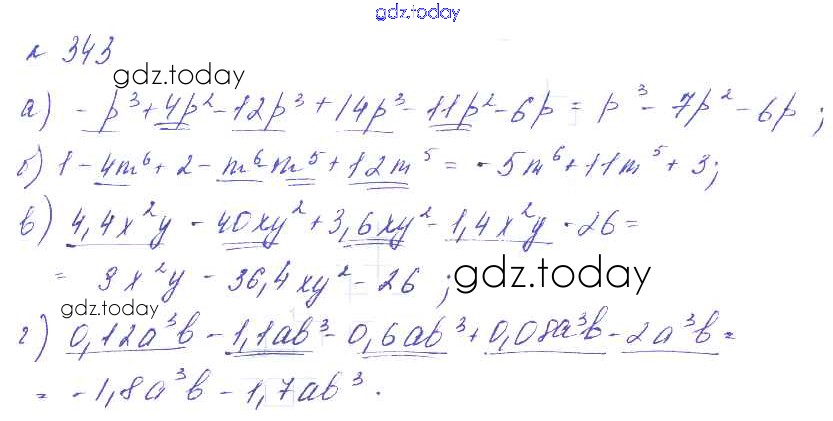 gdz.today
№ 343
gdz.today
а) -p³ + 4p² - 12p³ + 14p³ - 11p² - 6p = p³ - 7p² - 6p;
б) 1 - 4m⁶ + 2 - m⁶ - m⁵ + 12m⁵ = -5m⁶ + 11m⁵ + 3;
в) 4,4x²y - 40xy² + 3,6xy² - 1,4x²y - 26 =
= 3x²y - 36,4xy² - 26; gdz.today
gdz.today
г) 0,12a³b - 1,1ab³ - 0,6ab³ + 0,08a³b - 2a³b =
= -1,8a³b - 1,7ab³.